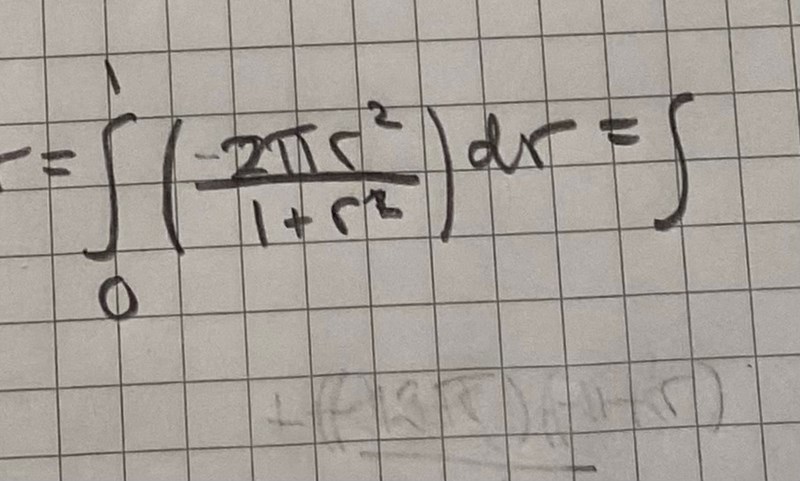 r = ∫₀¹ (-2πr² / 1+r²) dr = ∫